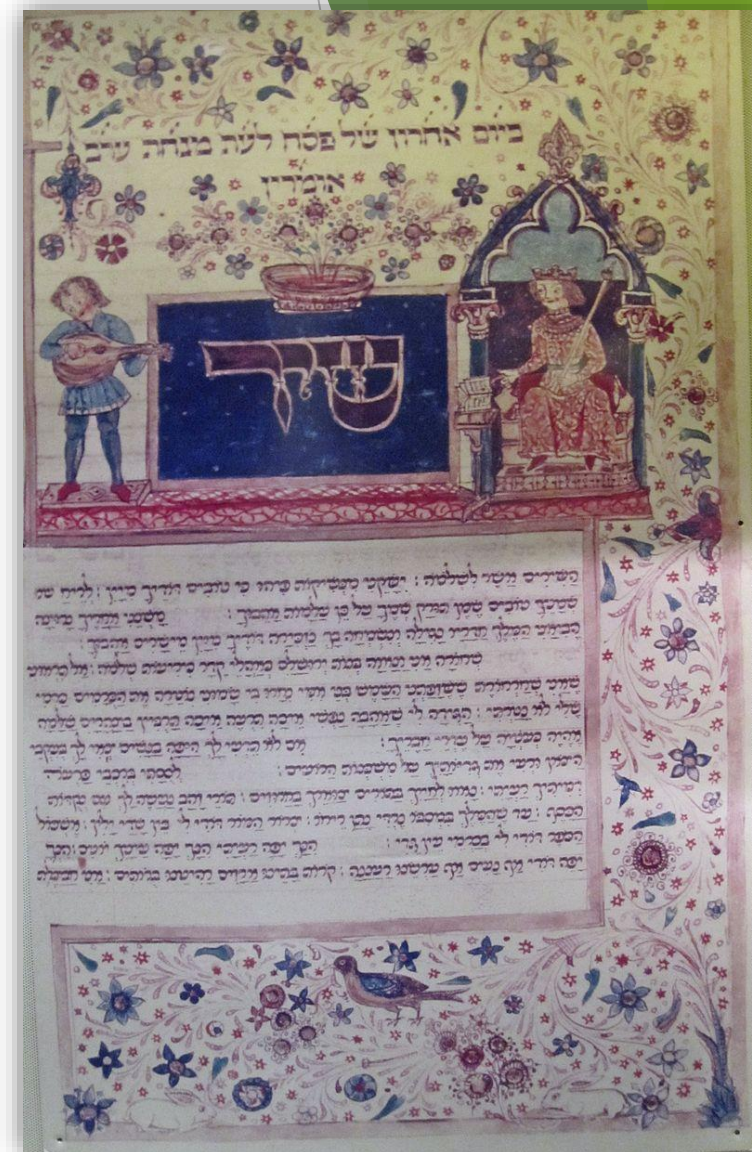 ביום אחרון של פסח לעת מנחה ערב
אומרין
שיר
השירים אשר לשלמה : ישקני מנשיקות פיהו כי טובים דודיך מיין : לריח שמ
שמניך טובים שמן תורק שמך על כן עלמות אהבוך : משכני אחריך נרוצה
הביאני המלך חדריו נגילה ונשמחה בך נזכירה דודיך מיין מישרים אהבוך :
שחורה אני ונאוה בנות ירושלם כאהלי קדר כיריעות שלמה : אל תראוני
שאני שחרחורת ששזפתני השמש בני אמי נחרו בי שמוני נוטרה את הכרמים כרמי
שלי לא נטרתי : הגידה לי שאהבה נפשי איכה תרעה איכה תרביץ בצהרים שלמה
אהיה כעטיה על עדרי חבריך : אם לא תדעי לך היפה בנשים צאי לך בעקבי
הצאן ורעי את גדיותיך על משכנות הרועים : לססתי ברכבי פרעה
דמיתיך רעיתי : נאוו לחייך בתורים צוארך בחרוזים : תורי זהב נעשה לך עם נקדות
הכסף : עד שהמלך במסבו נרדי נתן ריחו : צרור המור דודי לי בין שדי ילין : אשכול
הכפר דודי לי בכרמי עין גדי : הנך יפה רעיתי הנך יפה עיניך יונים הנך
יפה דודי אף נעים אף ערשנו רעננה : קרות בתינו ארזים רהיטנו ברותים : אני חבצלת